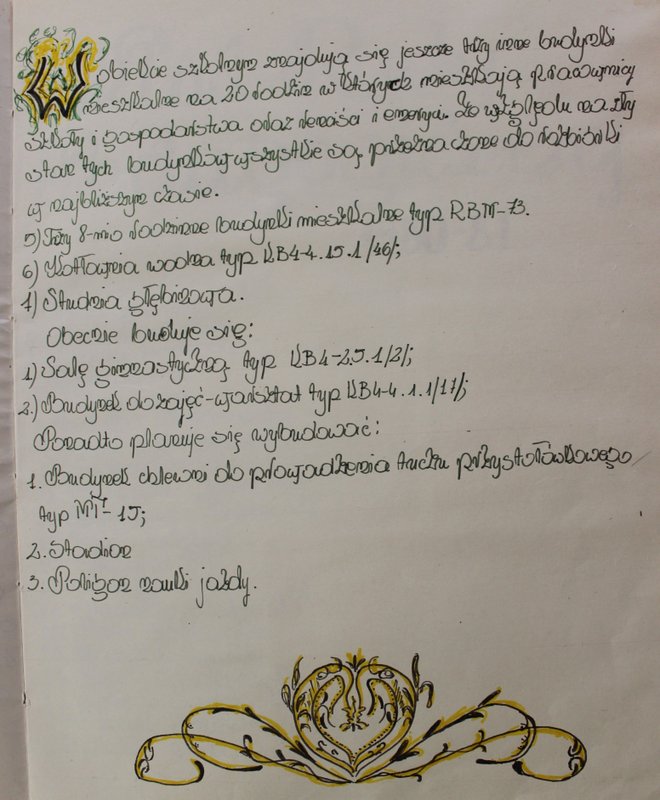 W obiekcie szkolnym znajdują się jeszcze trzy inne budynki
mieszkalne na 20 rodzin w których mieszkają pracownicy
szkoły i gospodarstwa oraz renciści i emeryci. Ze względu na zły
stan tych budynków wszystkie są przeznaczone do rozbiórki
w najbliższym czasie.
5) Trzy 8-mio rodzinne budynki mieszkalne typ RBM-73.
6) Kotłownia wodna typ KB4-4.15.1/46/;
7) Studnia głębinowa.
Obecnie buduje się:
1) Salę gimnastyczną typ KB4-2.5.1/2/;
2.) Budynek do zajęć-warsztat typ KB4-4.1.1/17/;
Ponadto planuje się wybudować:
1. Budynek chlewni do prowadzenia tuczu przystołówkowego
typ MT-15;
2. Stadion
3. Poligon nauki jazdy.